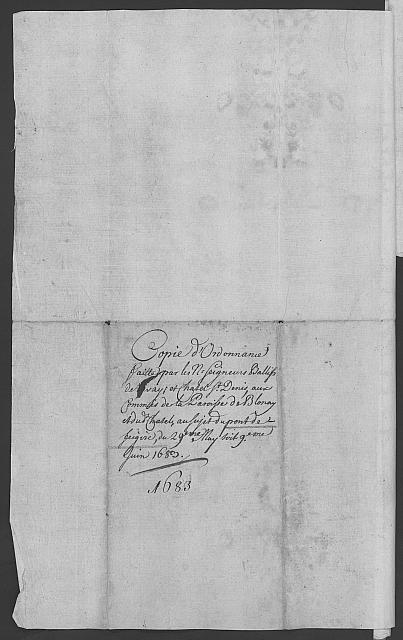 Copie d'Ordonnance
faitte par les Nn. Seigneurs Ballifs
de Vevay, et Chatel St. Denis, aux
Commis de la Paroisse de Blonay
et dud. Chatel, au sujet du pont de
feigire, du 29.me May soit 9.me
Juin 1683.
1683